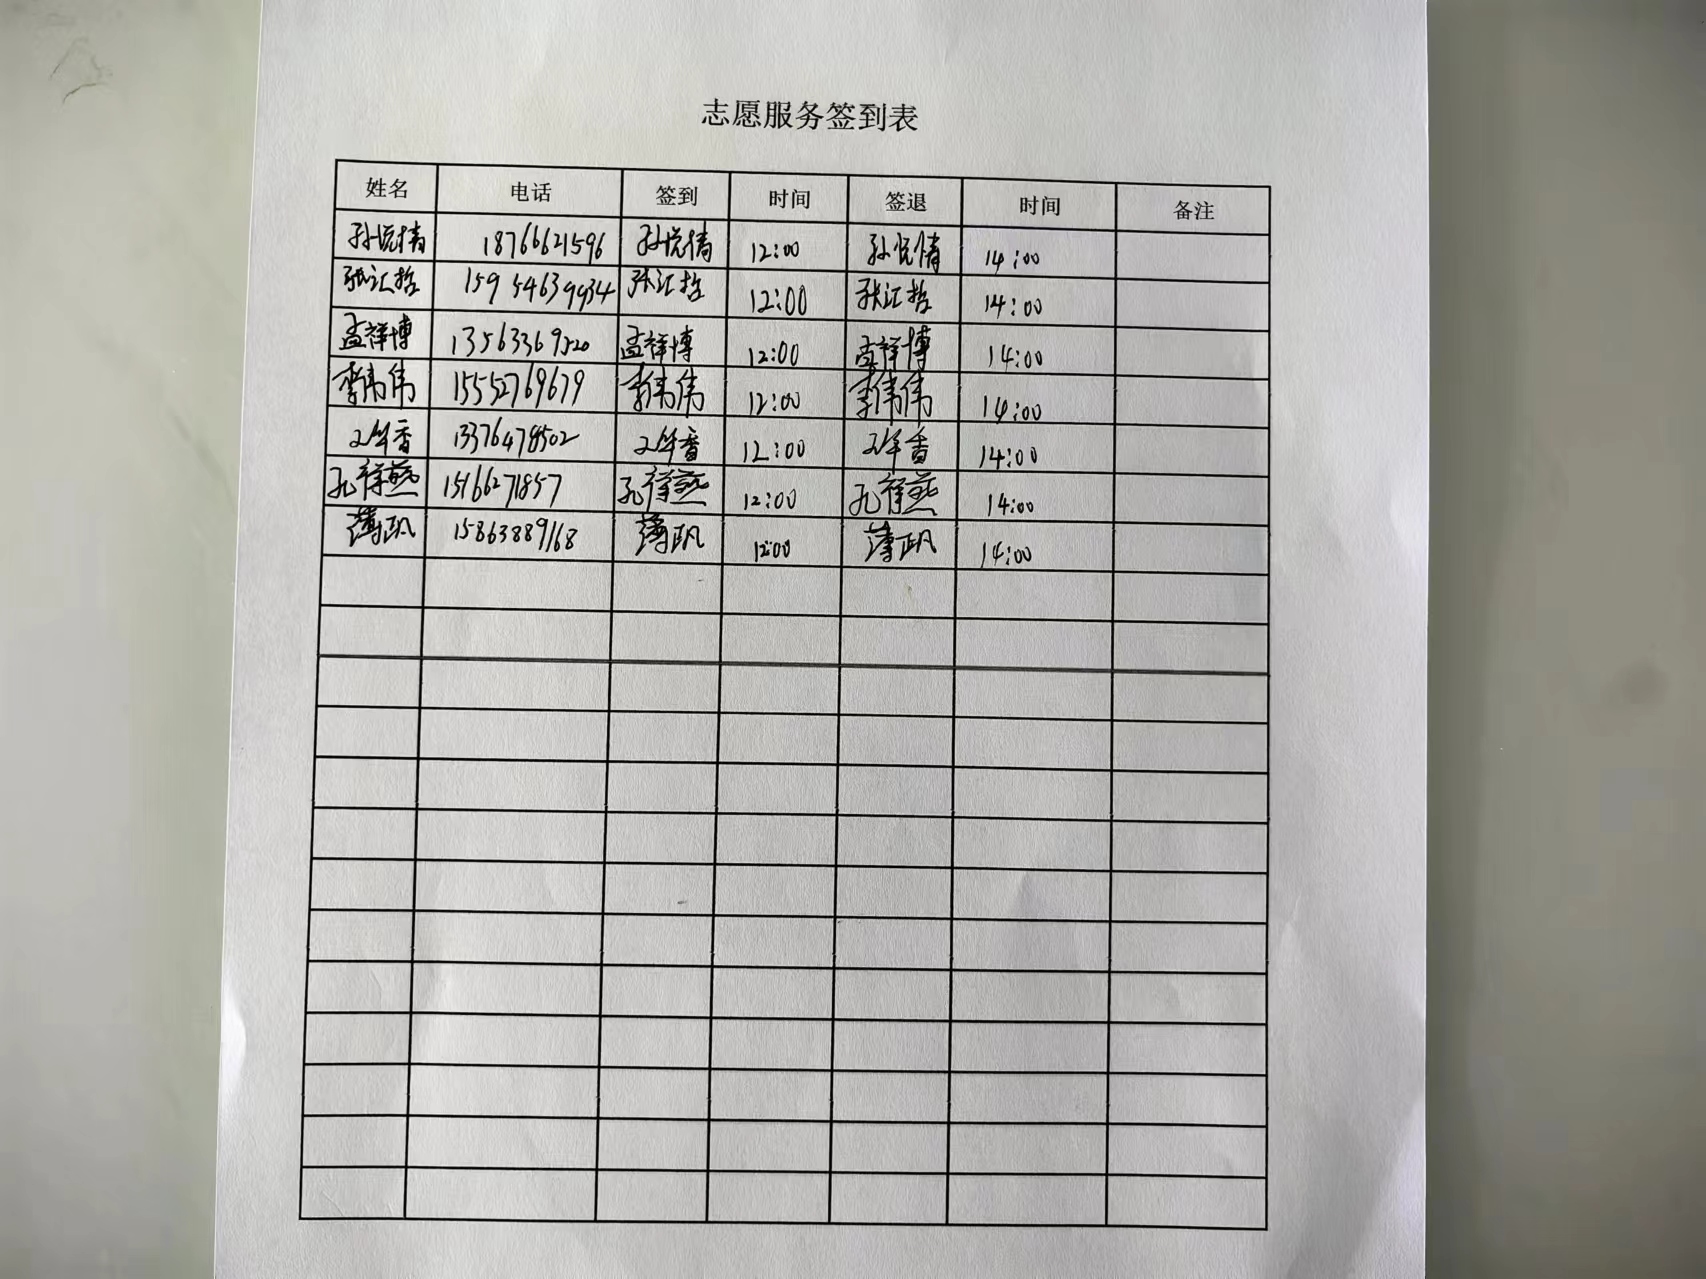 志愿服务签到表
姓名 电话 签到 时间 签退 时间 备注
孙悦倩 18766621596 孙悦倩 12:00 孙悦倩 14:00
张汇哲 15954639934 张汇哲 12:00 张汇哲 14:00
孟祥博 13563369520 孟祥博 12:00 孟祥博 14:00
李伟伟 15552769679 李伟伟 12:00 李伟伟 14:00
13376478502 12:00 14:00
孔祥燕 15166271857 孔祥燕 12:00 孔祥燕 14:00
15863889168 12:00 14:00